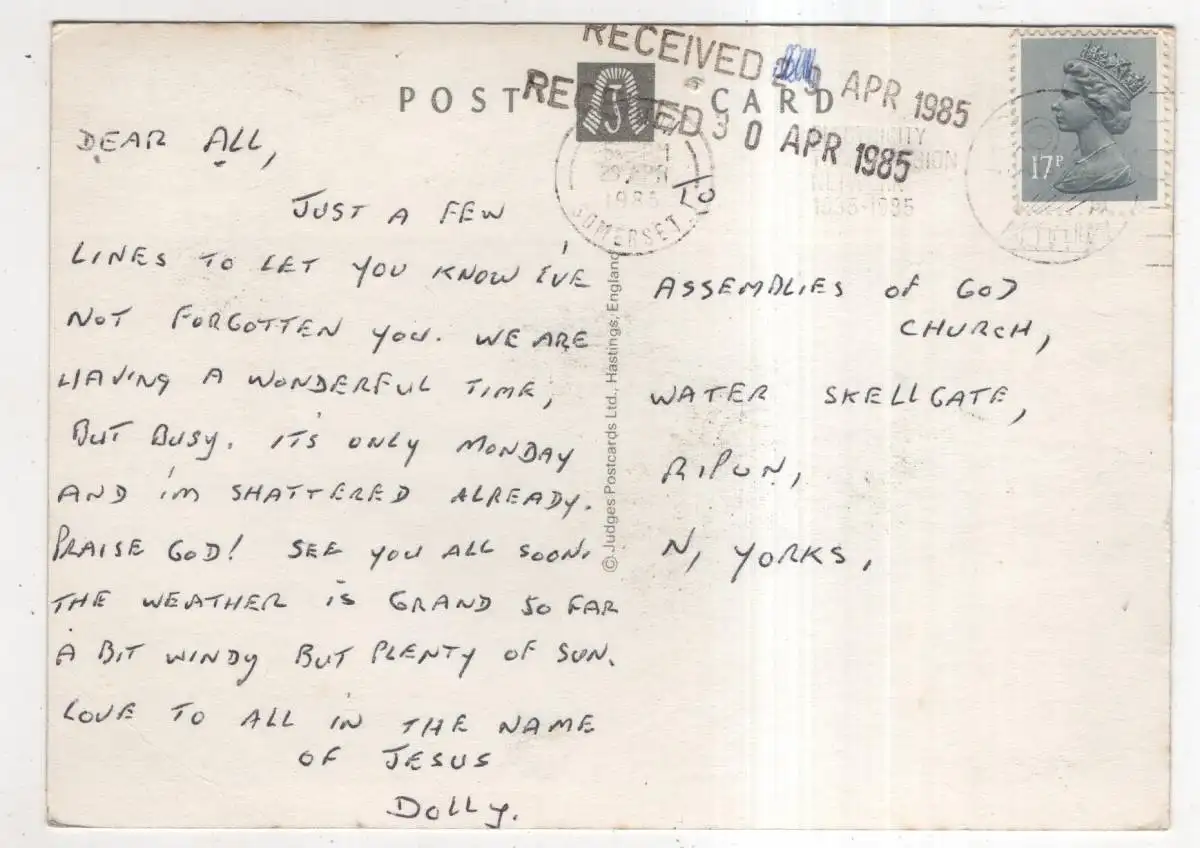 RECEIVED 29 APR 1985
POST CARD
RECEIVED 30 APR 1985
J
17P
29 APR
1985
SOMERSET
NETWORK
1935-1985
DEAR ALL,
JUST A FEW
LINES TO LET YOU KNOW I'VE
NOT FORGOTTEN YOU. WE ARE
HAVING A WONDERFUL TIME,
BUT BUSY. IT'S ONLY MONDAY
AND I'M SHATTERED ALREADY.
PRAISE GOD! SEE YOU ALL SOON.
THE WEATHER IS GRAND SO FAR
A BIT WINDY BUT PLENTY OF SUN.
LOVE TO ALL IN THE NAME
OF JESUS
DOLLY.
© Judges Postcards Ltd., Hastings, England
ASSEMBLIES OF GOD
CHURCH,
WATER SKELLGATE,
RIPON,
N, YORKS,